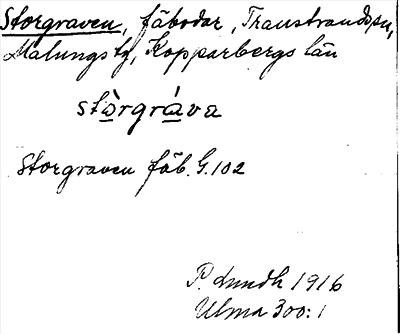 Storgraven, fäbodar, Transtrands sn,
Malungs tg, Kopparbergs län
stòrgráva
Storgraven fäb. G. 102
P. Lundh 1916
Ulma 300: 1